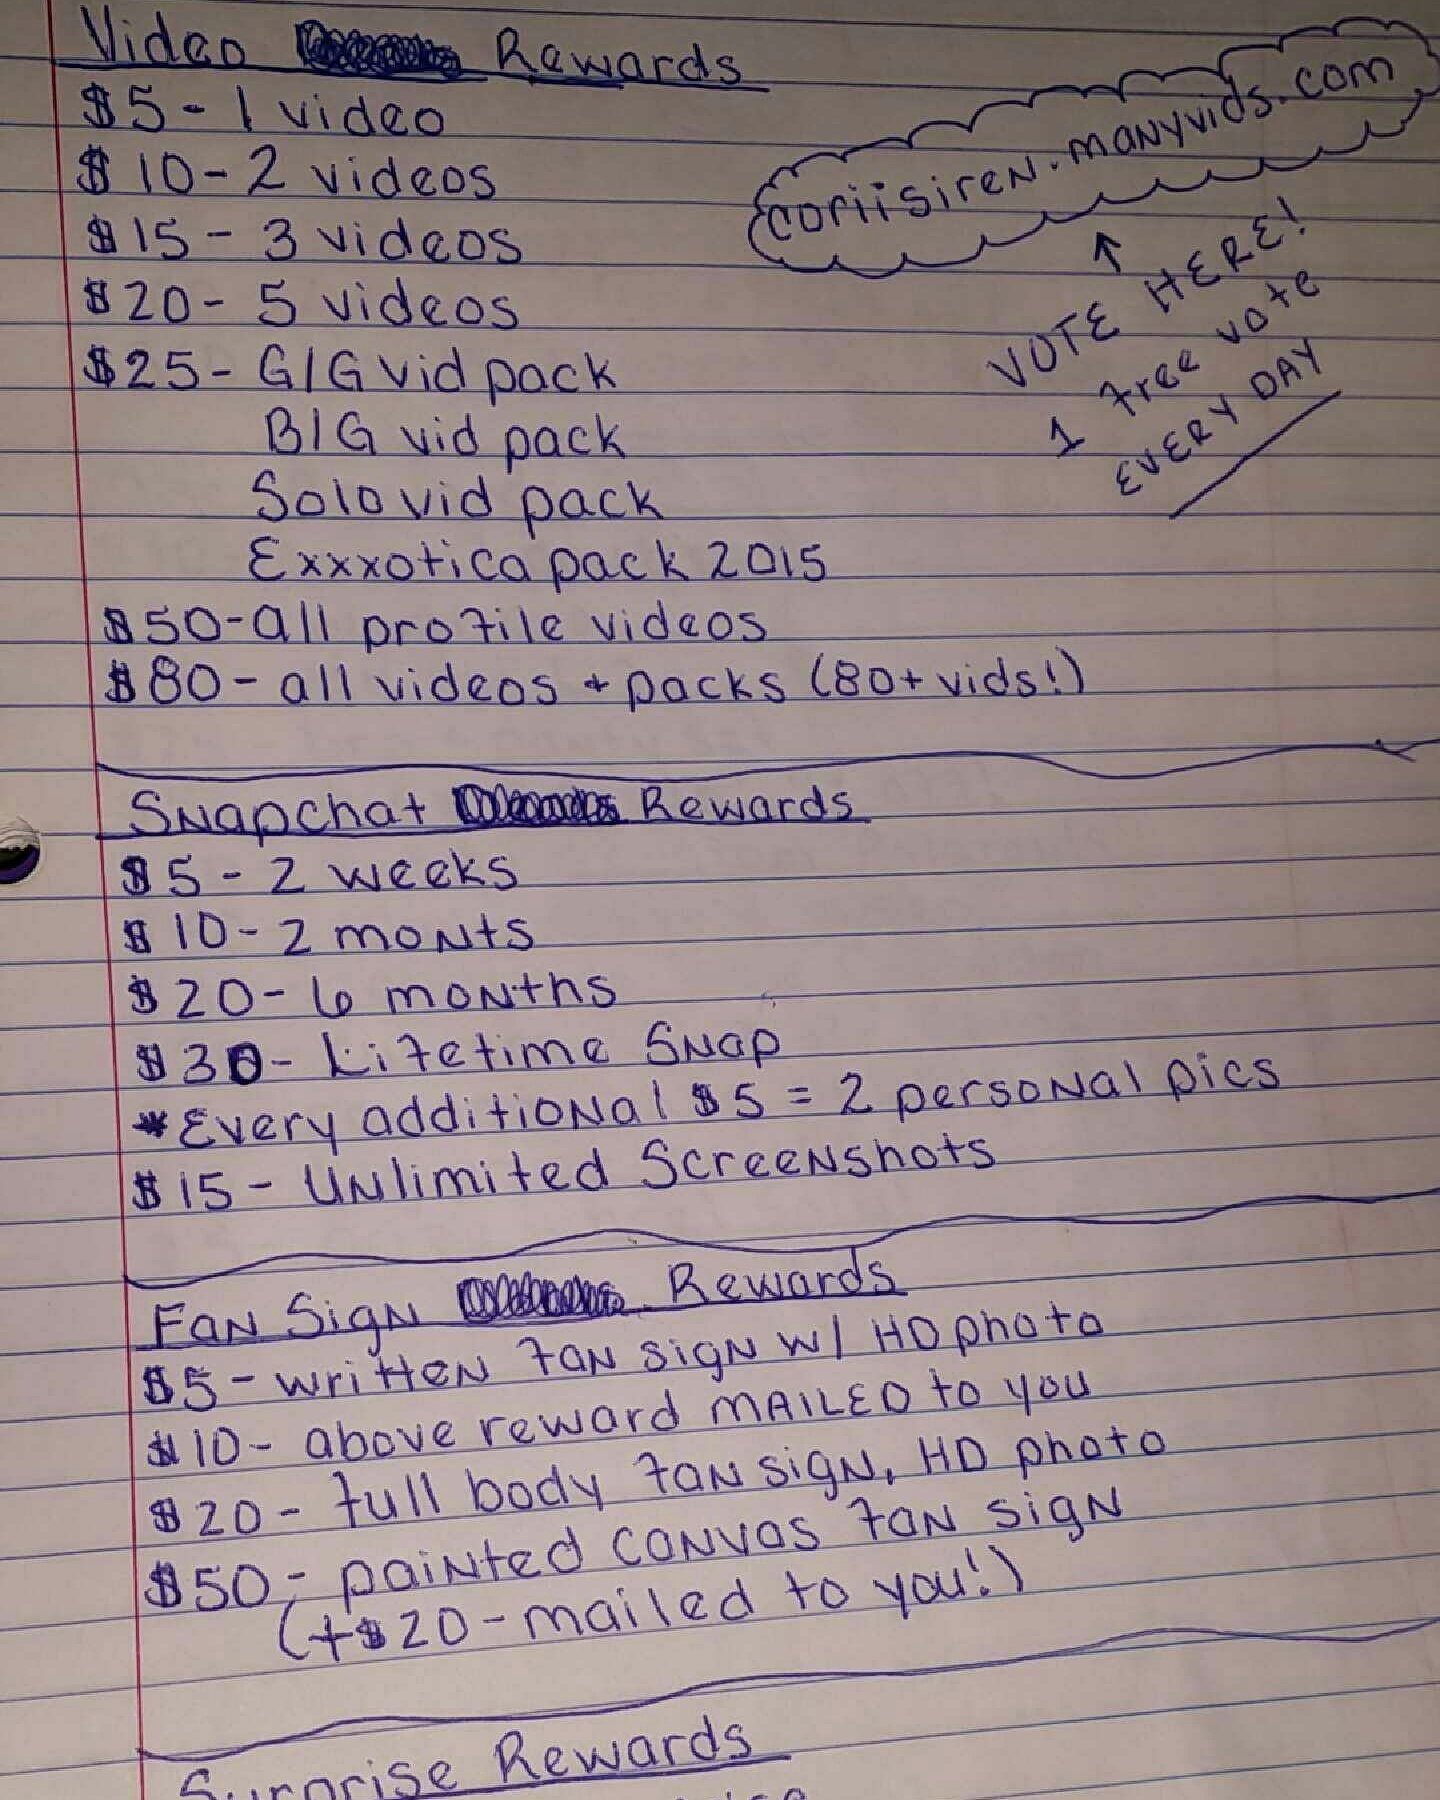 Video Rewards
$5 - 1 video
$10 - 2 videos
$15 - 3 videos
$20 - 5 videos
$25 - G/G vid pack
B/G vid pack
Solo vid pack
Exxxotica pack 2015
$50 - all profile videos
$80 - all videos + packs (80+ vids!)
coriisiren.manyvids.com
↑
VOTE HERE!
1 free vote
EVERY DAY
Snapchat Rewards
$5 - 2 weeks
$10 - 2 monts
$20 - 6 months
$30 - Lifetime Snap
*Every additional $5 = 2 personal pics
$15 - Unlimited Screenshots
Fan Sign Rewards
$5 - written fan sign w/ HD photo
$10 - above reward MAILED to you
$20 - full body fan sign, HD photo
$50 - painted canvas fan sign
(+$20 - mailed to you!)
Surprise Rewards